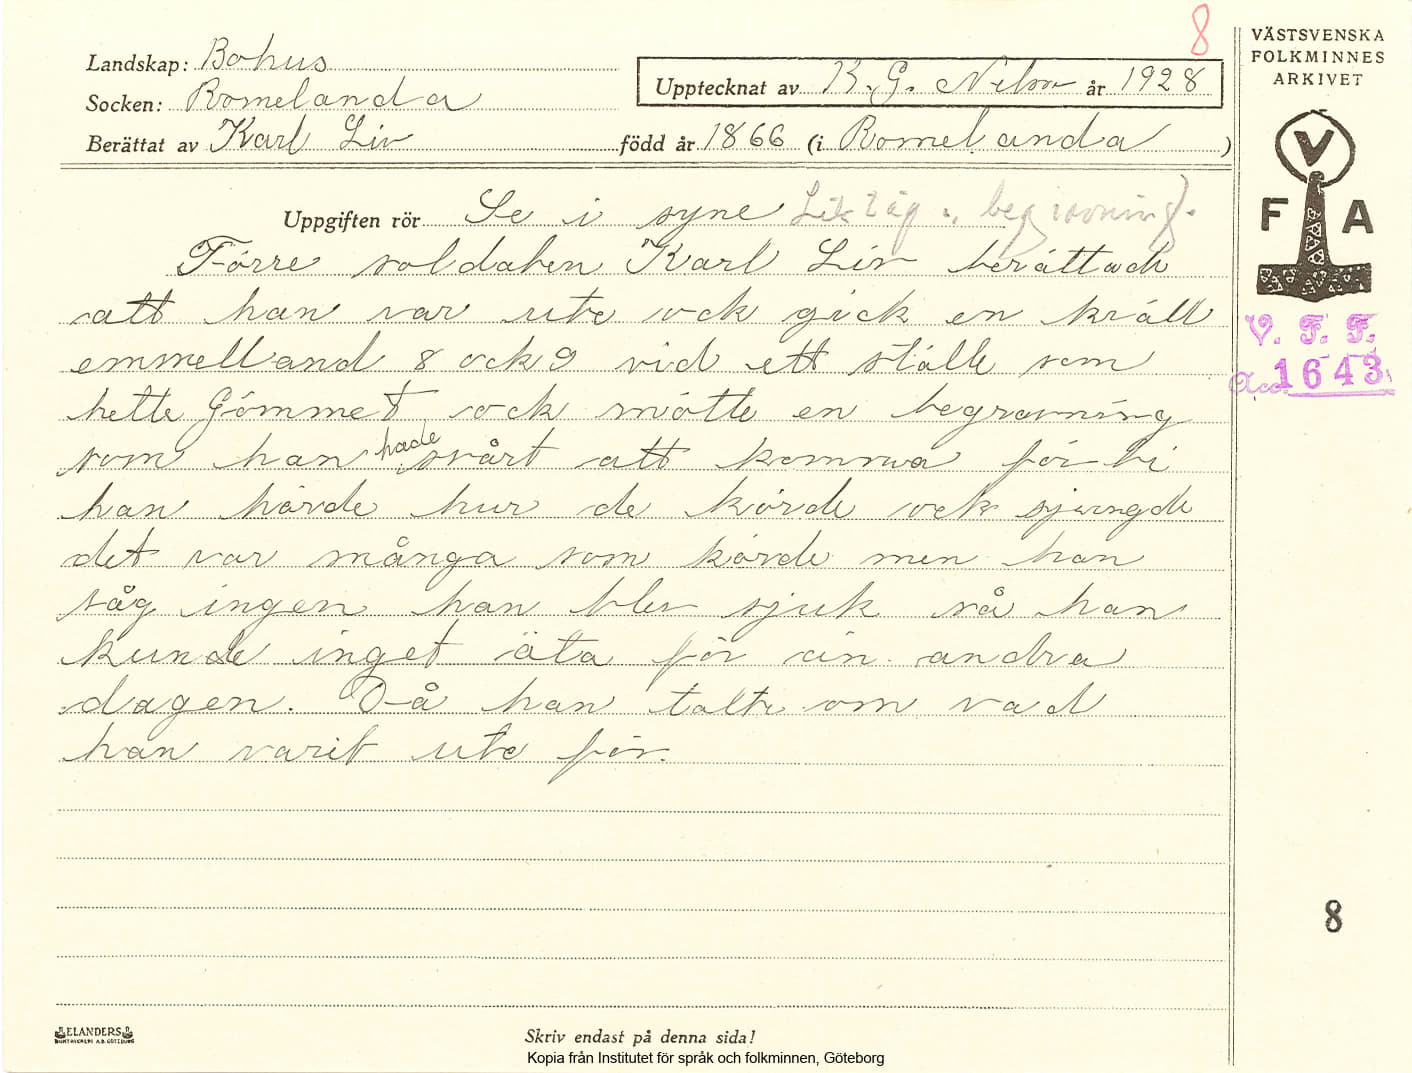 8
VÄSTSVENSKA
FOLKMINNES
ARKIVET
Landskap: Bohus
Socken: Romelanda
Upptecknat av K. G. Nilson år 1928
Berättat av Karl Liv född år 1866 (i Romelanda)
Uppgiften rör Se i syne Liktåg, begravning.
Förre soldaten Karl Liv berättade
att han var ute ock gick en kväll
emmelland 8 ock 9 vid ett ställe som
hette Gömmet ock mötte en begravning
som han hade svårt att komma förbi
han hörde hur de körde ock sjungde
det var många som körde men han
såg ingen han blev sjuk så han
kunde inget äta för än andra
dagen. Då han talte om vad
han varit ute för.
V F A
V. F. F.
Acc. 1643
8
ELANDERS
BOKTRYCKERI A.B. GÖTEBORG
Skriv endast på denna sida!
Kopia från Institutet för språk och folkminnen, Göteborg